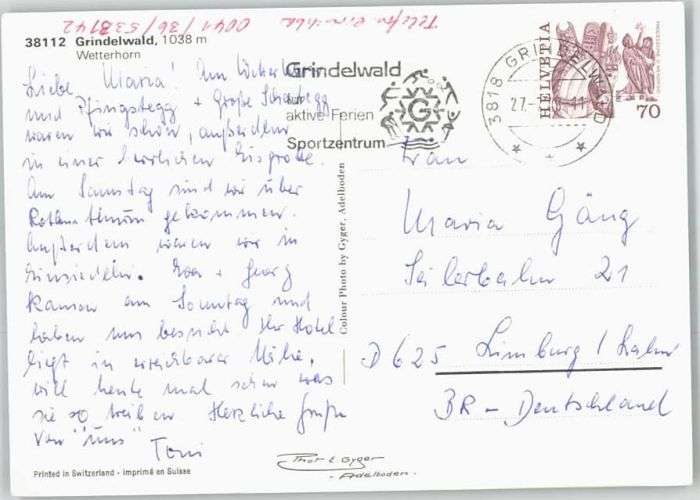 Telefon 0041/36/538142
38112 Grindelwald, 1038 m
Wetterhorn
Liebe Maria! Am
und Pfingstegg + Große Scheidegg
waren wir schon, außerdem
in einer herrlichen Eisgrotte.
Am Samstag sind wir über
gekommen.
Außerdem waren wir in
Einsiedeln. + Georg
kamen am Sonntag und
haben uns besucht Ihr Hotel
liegt in erreichbarer Nähe,
will heute mal sehen was
sie so treiben Herzliche Grüße
von "uns" Toni
Printed in Switzerland - Imprimé en Suisse
Colour Photo by Gyger, Adelboden
Phot E. Gyger
Adelboden
Grindelwald
für
aktive Ferien
Sportzentrum
G
3818 GRINDELWALD
27.
11
HELVETIA
70
Frau
Maria Gäng
Seilerbahn 21
D 625 Limburg / Lahn
BR-Deutschland